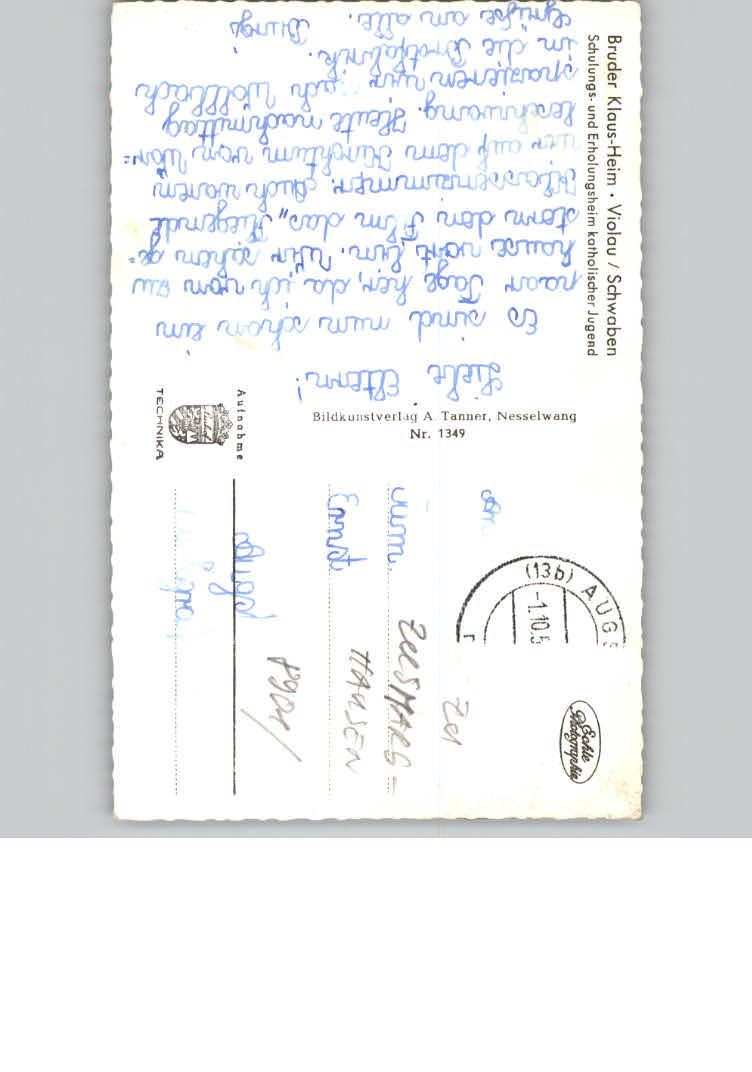 Bruder Klaus-Heim · Violau / Schwaben
Schulungs- und Erholungsheim katholischer Jugend
Liebe Eltern!
Es sind nun schon ein
paar Tage her, da ich von zu
hause fort bin. Wir sahen ge-
stern den Film das „Fliegende
Klassenzimmer. Auch waren
wir auf dem Kirchturm von Wör-
leschwang. Heute nachmittag
spazieren wir nach Wollbach
in die Brotfabrik.
Grüße an alle.
Bildkunstverlag A. Tanner, Nesselwang
Nr. 1349
Aufnahme
TECHNIKA
An
Ernst
(13b) AUGS
-1.10.5
Echte
Photographie
Zu
ZUSMARS-
HAUSEN